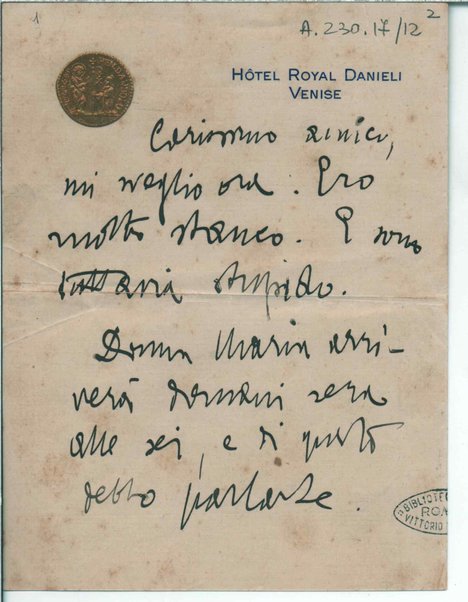 1
A. 230.17/12
2
HÔTEL ROYAL DANIELI
VENISE
Carissimo amico,
mi sveglio ora. Ero
molto stanco. E sono
tuttavia stupido.
Donna Maria arri-
verà domani sera
alle sei, e di questo
debbo parlarle.
BIBLIOTE
RO
VITTORIO